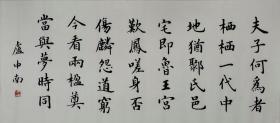 夫子何為者
栖栖一代中
地猶鄹氏邑
宅即魯王宮
歎鳳嗟身否
傷麟怨道窮
今看兩楹奠
當與夢時同
盧中南